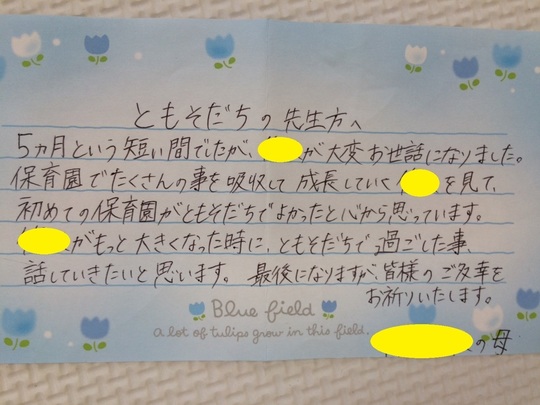 ともそだちの先生方へ
5ヵ月という短い間でしたが、が大変お世話になりました。
保育園でたくさんの事を吸収して成長していくを見て、
初めての保育園がともそだちでよかったと心から思っています。
がもっと大きくなった時に、ともそだちで過ごした事、
話していきたいと思います。最後になりますが、皆様のご多幸を
お祈りいたします。
Blue field
a lot of tulips grow in this field.
の母